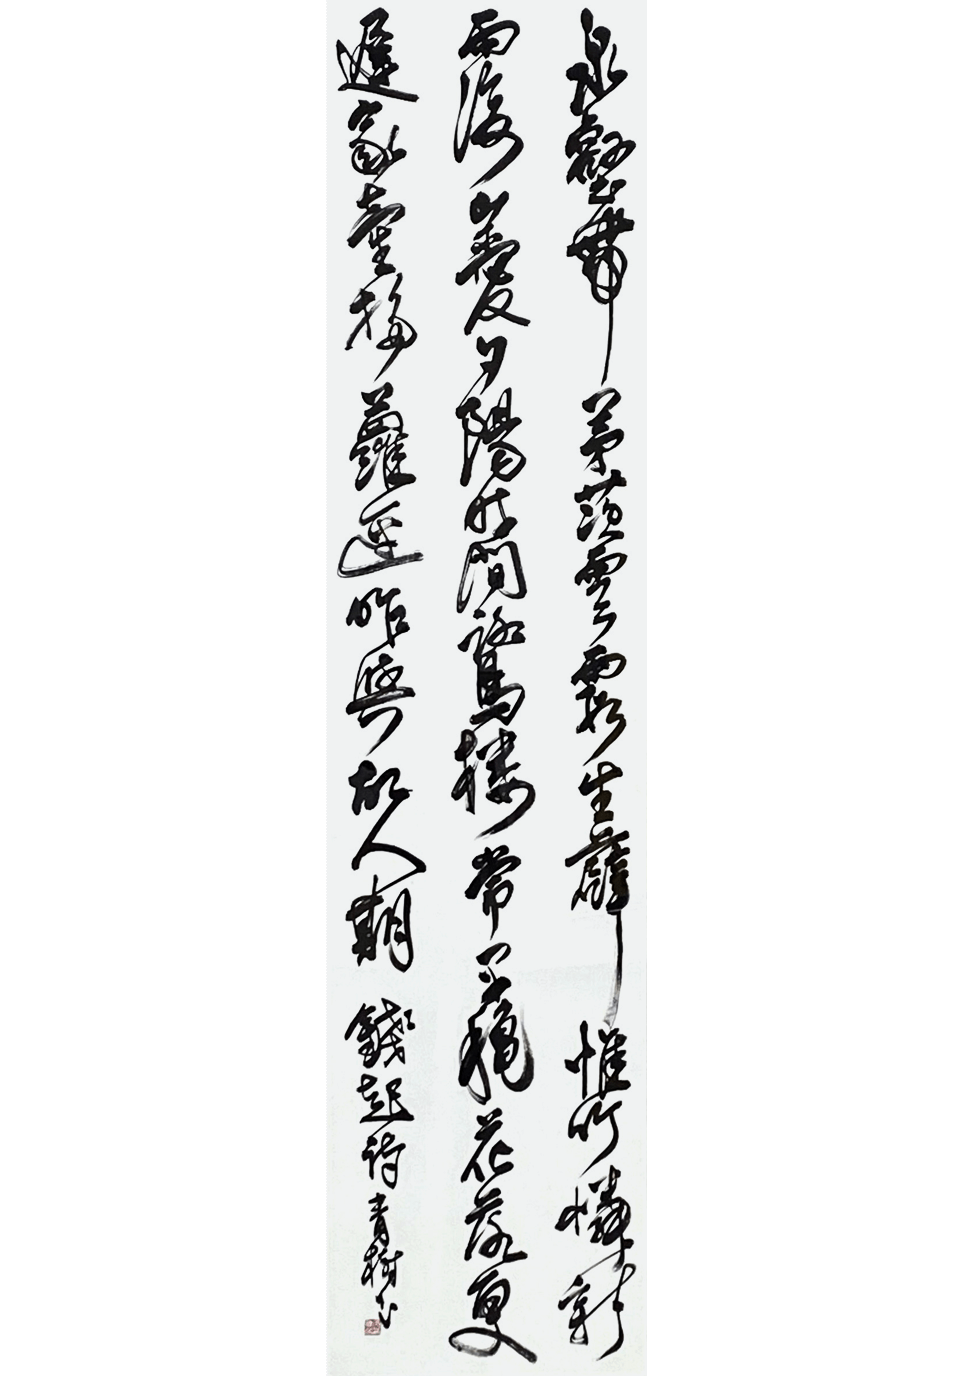 泉壑帶茅茨雲霞生薜帷竹憐新
雨後山愛夕陽時間鷺棲常早穐花落更
遲家童掃蘿逕昨與故人期 錢起詩 青樹書